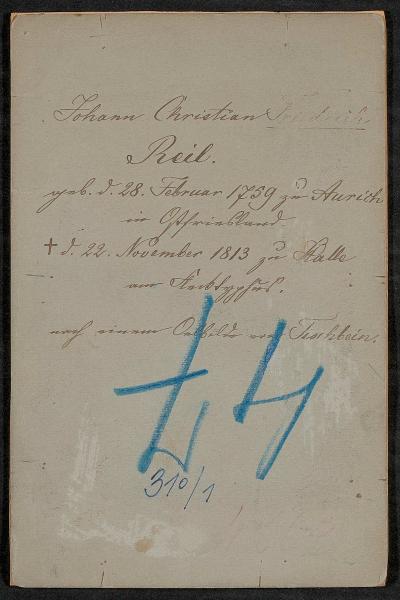 Johann Christian Friedrich
Reil.
geb. d. 28. Februar 1759 zu Aurich
in Ostfriesland.
† d. 22. November 1813 zu Halle
am
nach einem Oelbilde von Tischbein.
310/1